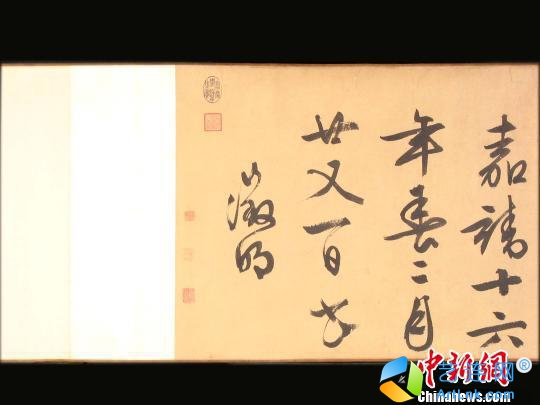 嘉靖十六
年春二月
廿又一日書
徵明
中新網®
Chinanews.com